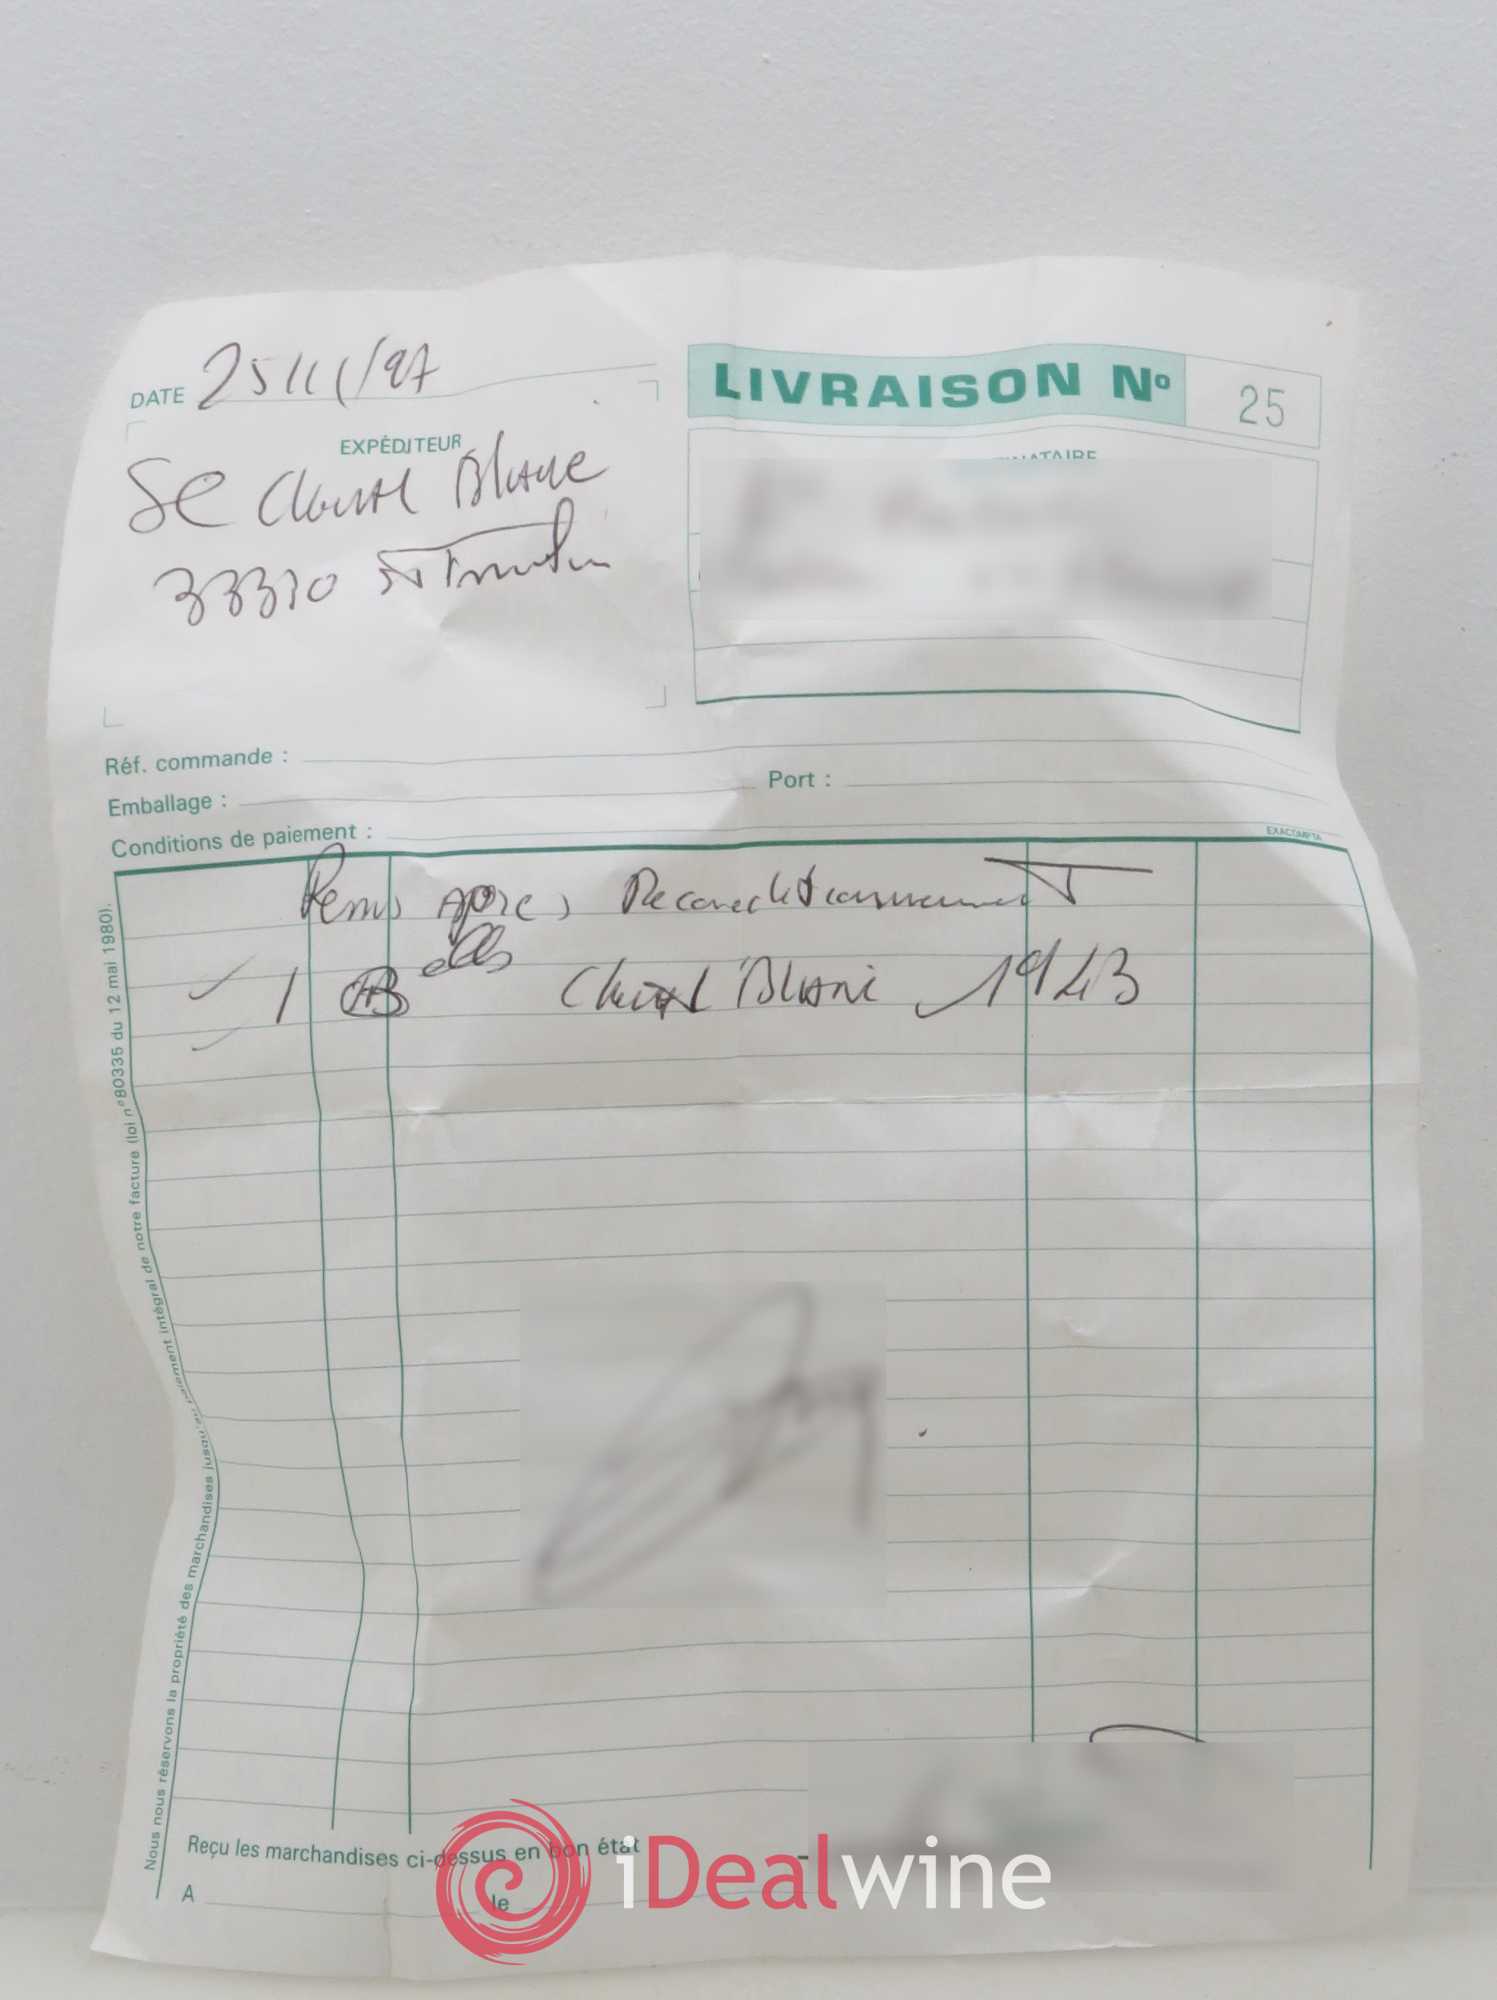 DATE 25/11/97
LIVRAISON Nº 25
EXPÉDITEUR
SC Cheval Blanc
33330 St Emilion
Réf. commande :
Emballage :
Port :
Conditions de paiement :
EXACOMPTA
Remis après Reconditionnement
1 Blle Cheval Blanc 1943
Nous nous réservons la propriété des marchandises jusqu'au paiement intégral de notre facture (loi nº80335 du 12 mai 1980).
Reçu les marchandises ci-dessus en bon état
A le
iDealwine